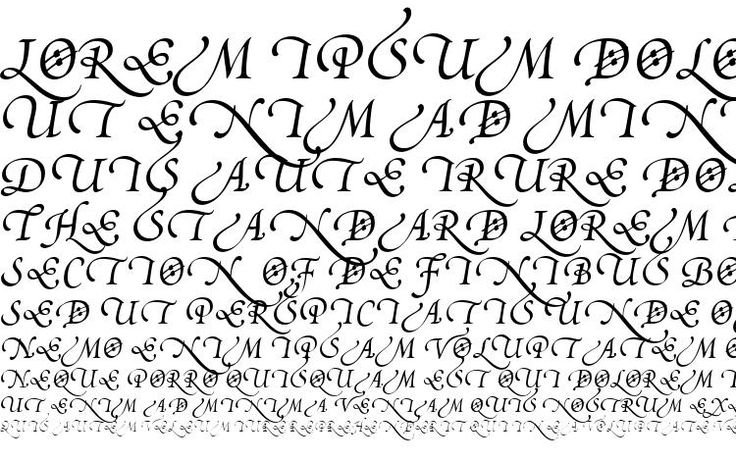 LOREM IPSUM DOLO
UT ENIM AD MIN
DUIS AUTE IRURE DOL
THE STANDARD LOREM I
SECTION OF DE FINIBUS BO
SED UT PERSPICIATIS UNDE O
NEMO ENIM IPSAM VOLUPTATEM
NEQUE PORRO QUISQUAM EST QUI DOLOREM I
UT ENIM AD MINIMA VENIAM QUIS NOSTRUM EX
QUIS AUTEM VEL EUM IURE REPREHENDERIT QUI IN EA